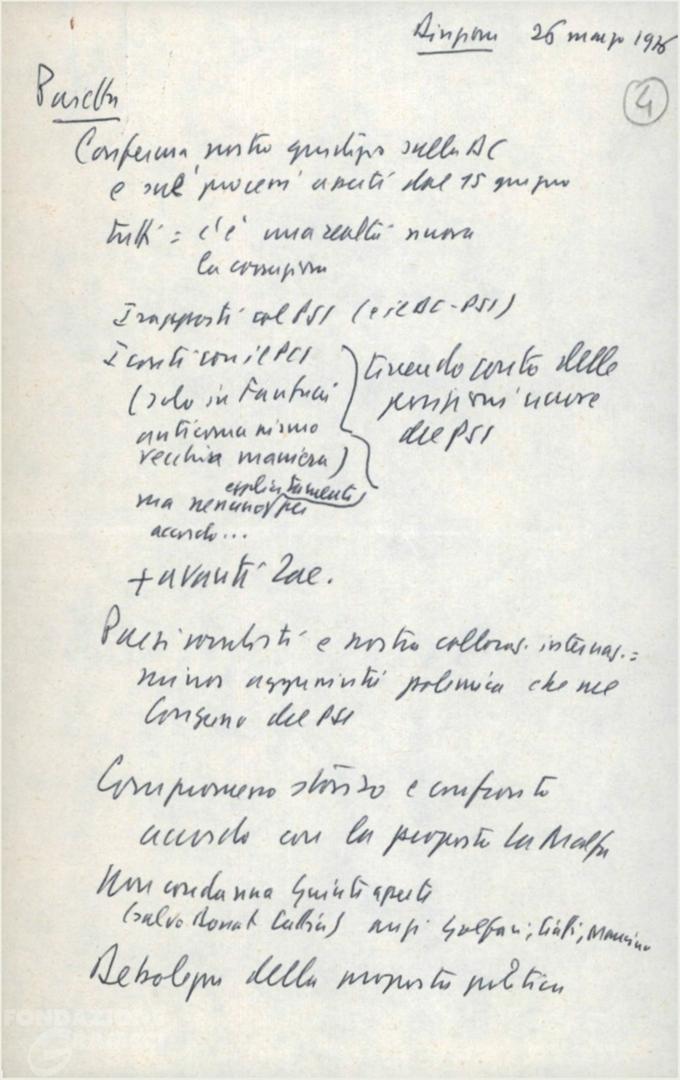 Direzione 26 marzo 1976
4
Pajetta
Conferma nostro giudizio sulla DC
e sui processi usciti dal 15 giugno
tutti = c'è una realtà nuova
la corruzione
I rapporti col PSI (e il DC-PSI)
I conti con il PCI
(solo in Fanfani
anticomunismo
vecchia maniera)
tenendo conto delle
posizioni nuove
del PSI
esplicitamente
ma nessuno per
accordo...
+ avanti Zac.
Paesi socialisti e nostra collocaz. internaz. =
minor aggressività polemica che nel
Congresso del PSI
Compromesso storico e confronto
accordo con la proposta La Malfa
Non condanna Giunte aperte
(salvo Donat Cattin) anzi Golfari,
Debolezza della proposta politica
FONDAZIONE
GRAMSCI